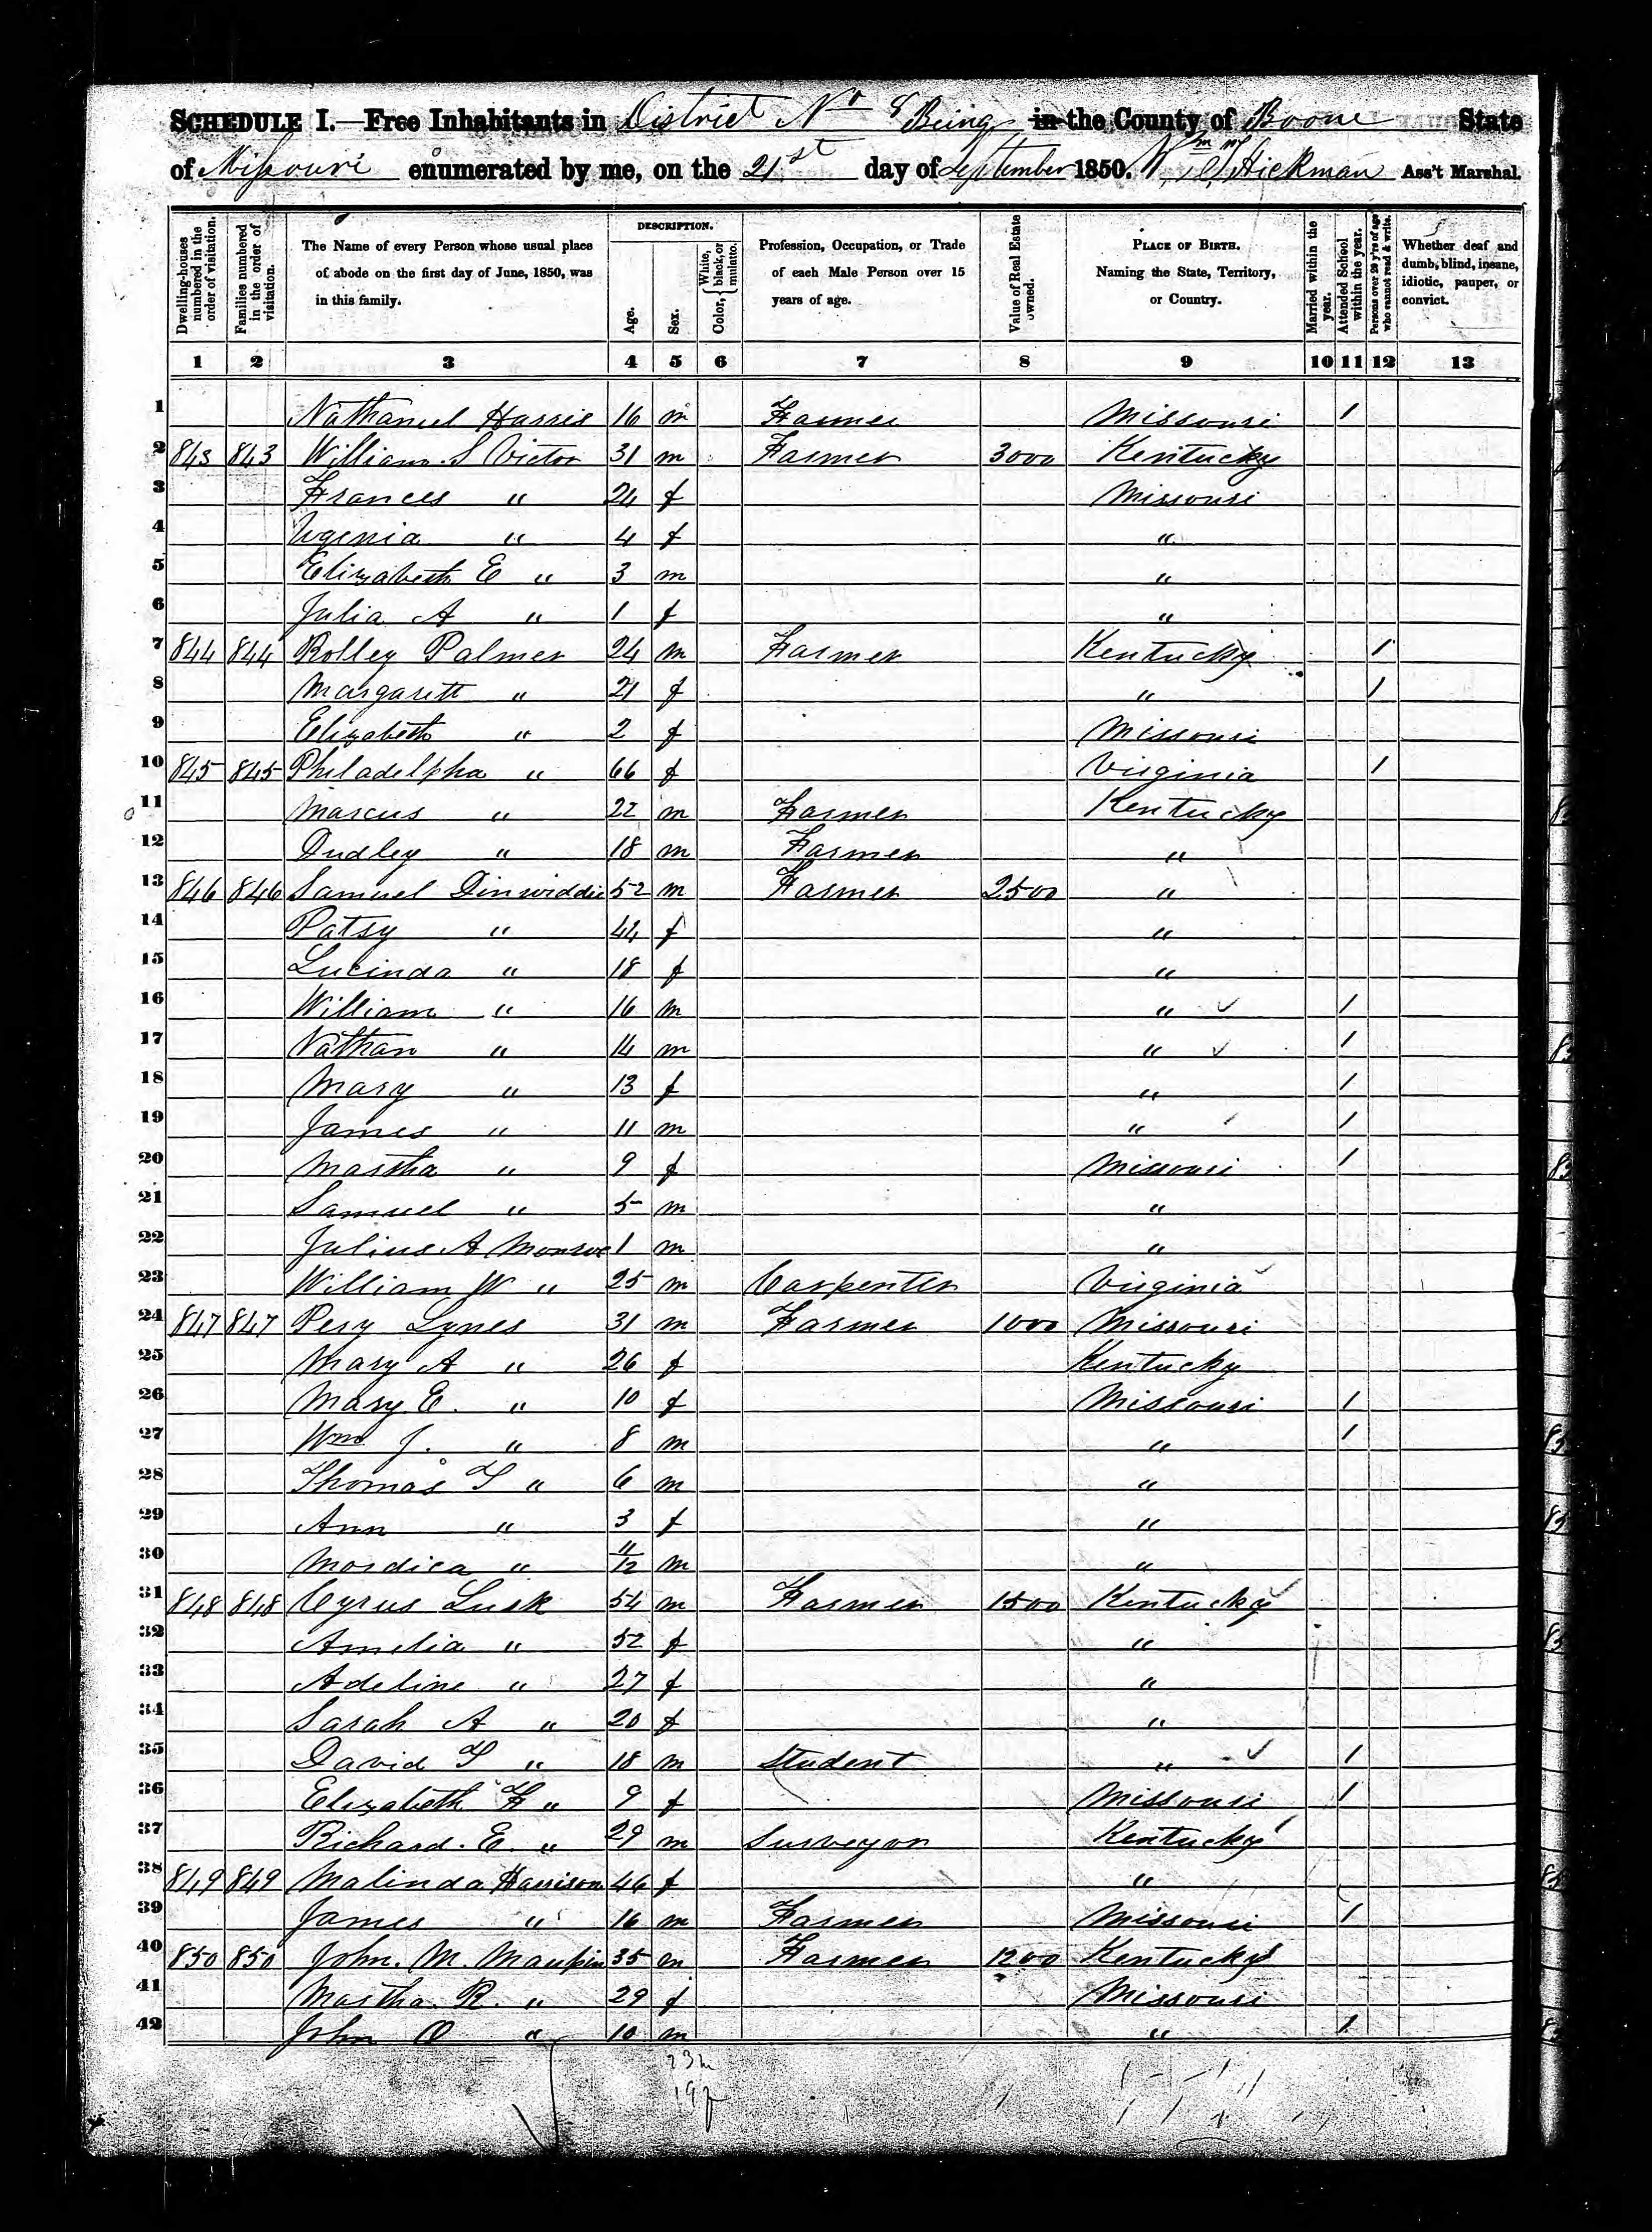 SCHEDULE I.—Free Inhabitants in District No 8 Being in the County of Boone State
of Missouri enumerated by me, on the 21st day of September 1850. Hickman Ass't Marshal.
Dwelling-houses numbered in the order of visitation. Families numbered in the order of visitation. The Name of every Person whose usual place of abode on the first day of June, 1850, was in this family. DESCRIPTION. Age. Sex. Color, { White, black, or mulatto. Profession, Occupation, or Trade of each Male Person over 15 years of age. Value of Real Estate owned. PLACE OF BIRTH. Naming the State, Territory, or Country. Married within the year. Attended School within the year. Persons over 20 y'rs of age who cannot read & write. Whether deaf and dumb, blind, insane, idiotic, pauper, or convict.
1 2 3 4 5 6 7 8 9 10 11 12 13
1 Nathaniel Harris 16 m Farmer Missouri /
2 843 843 William S Victor 31 m Farmer 3000 Kentucky
3 Frances " 24 f Missouri
4 Ugenia " 4 f "
5 Elizabeth E " 3 m "
6 Julia A " 1 f "
7 844 844 Rolley Palmer 24 m Farmer Kentucky 1
8 Margarett " 21 f " 1
9 Elizabeth " 2 f Missouri
10 845 845 Philadelpha " 66 f Virginia 1
11 Marcus " 22 m Farmer Kentucky
12 Dudley " 18 m Farmer "
13 846 846 Samuel Dinwiddie 52 m Farmer 2500 "
14 Patsy " 44 f "
15 Lucinda " 18 f "
16 William " 16 m " ✓ /
17 Nathan " 14 m " ✓ /
18 Mary " 13 f " /
19 James " 11 m " /
20 Martha " 9 f Missouri /
21 Samuel " 5 m "
22 Julius A Monroe 1 m "
23 William W " 25 m Carpenter Virginia
24 847 847 Pery Lynes 31 m Farmer 1000 Missouri
25 Mary A " 26 f Kentucky
26 Mary E. " 10 f Missouri /
27 Wm J. " 8 m " /
28 Thomas T " 6 m "
29 Ann " 3 f "
30 Mordica " 11/12 m "
31 848 848 Cyrus Lusk 54 m Farmer 1500 Kentucky
32 Amelia " 52 f "
33 Adeline " 27 f "
34 Sarah A " 20 f "
35 David T " 18 m Student " ✓ /
36 Elizabeth F " 9 f Missouri /
37 Richard. E. " 29 m Surveyor Kentucky
38 849 849 Malinda Harrison 46 f "
39 James " 16 m Farmer Missouri /
40 850 850 John. M. Maupin 35 m Farmer 1200 Kentucky
41 Martha. R. " 29 f Missouri
42 John O " 10 m " /
23 m
19 f